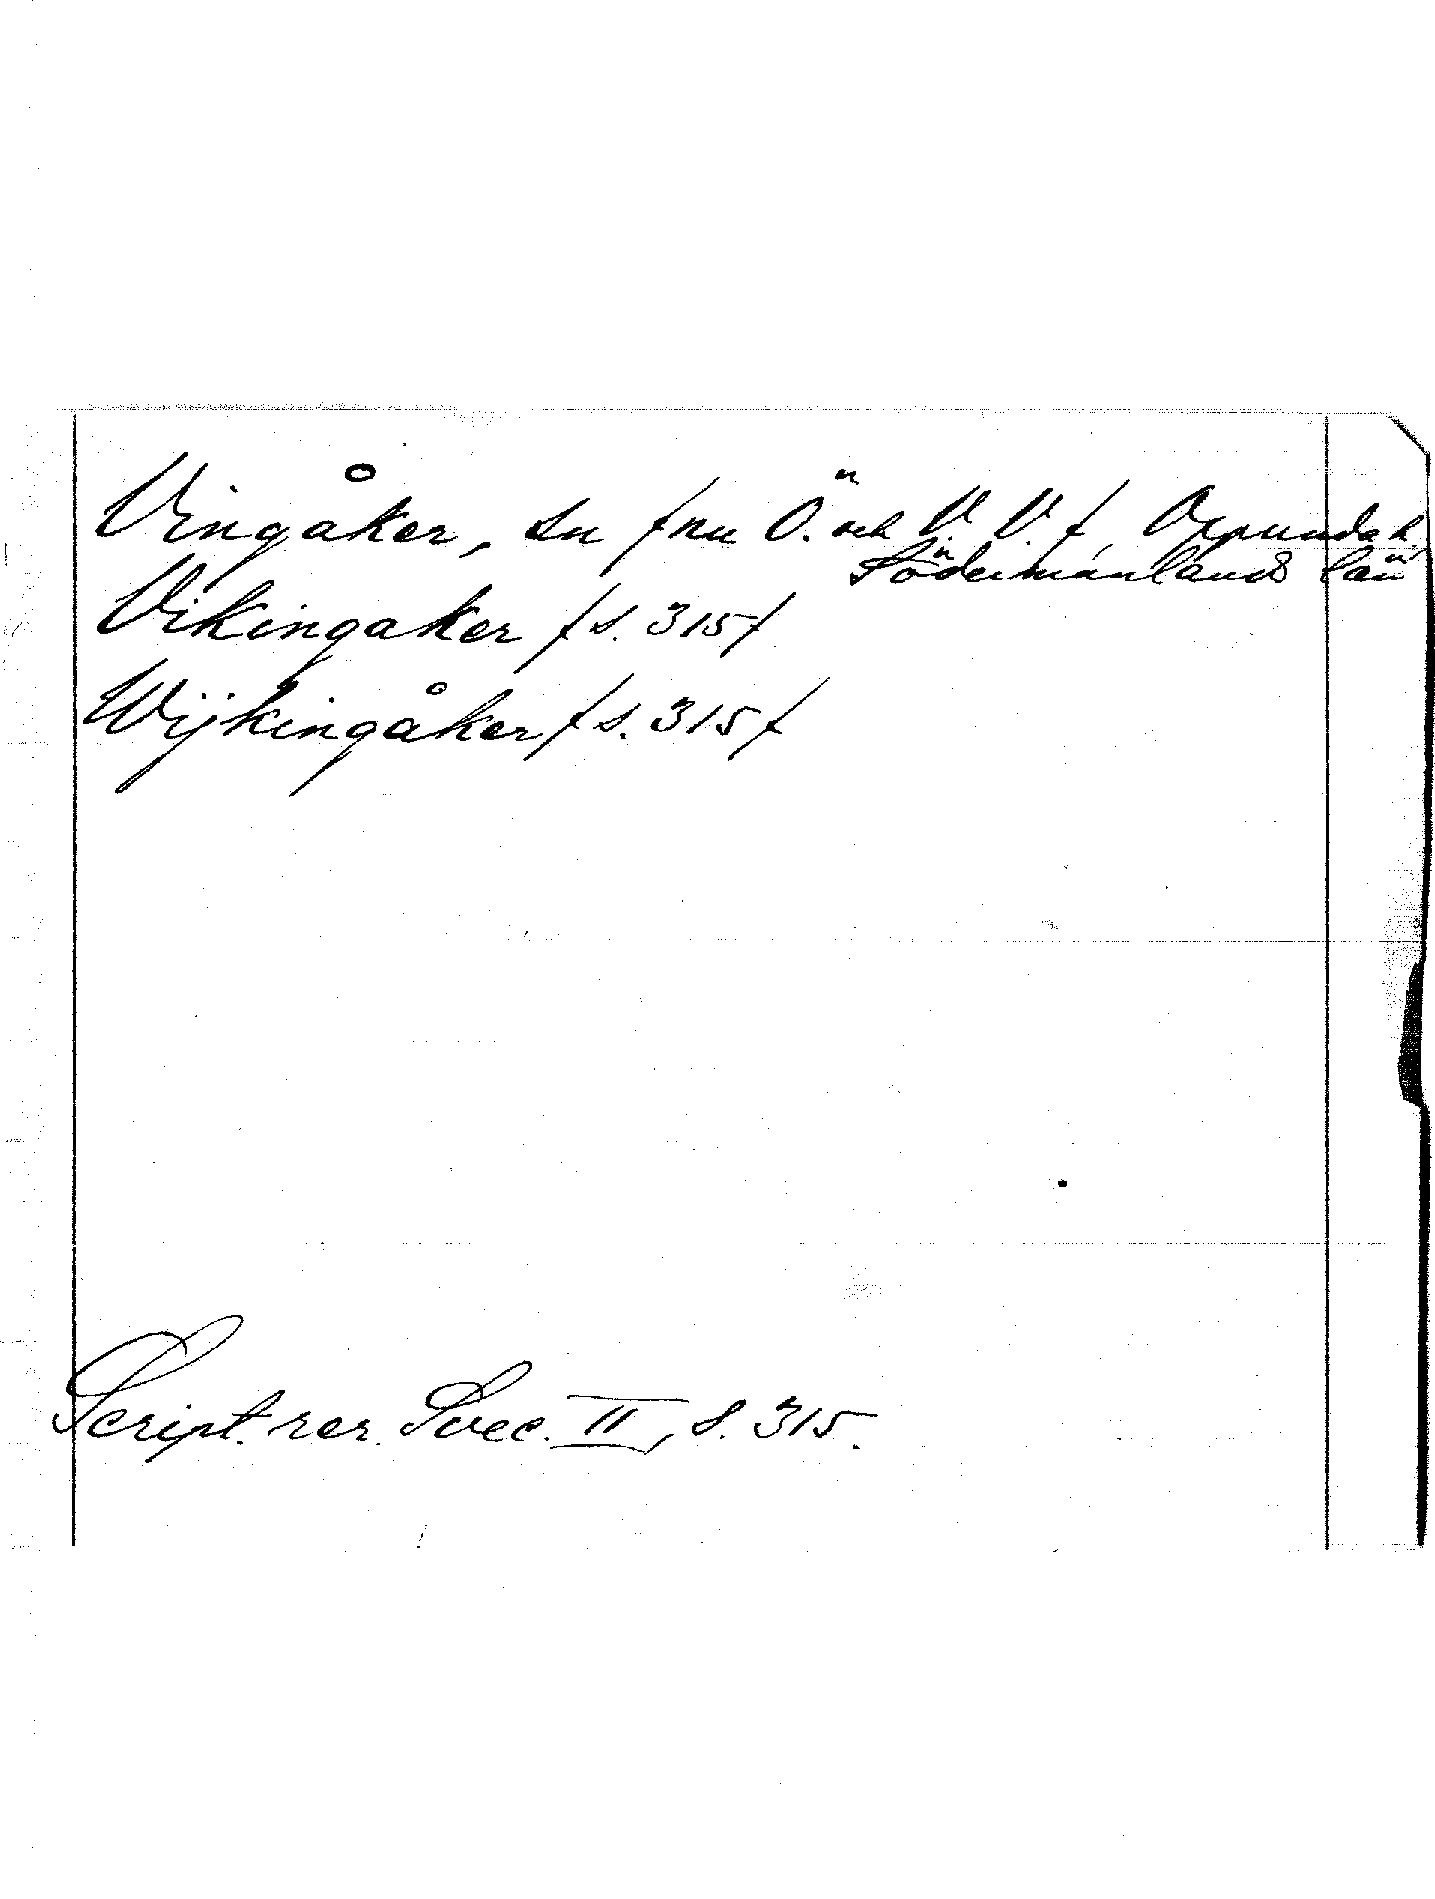 Vingåker, sn /nu Ö. och V. V./, Oppunda h,
Södermanlands län
Vikingaker /s. 315/
Wijkingåker /s. 315/
Script. rer. Svec. II, s. 315.